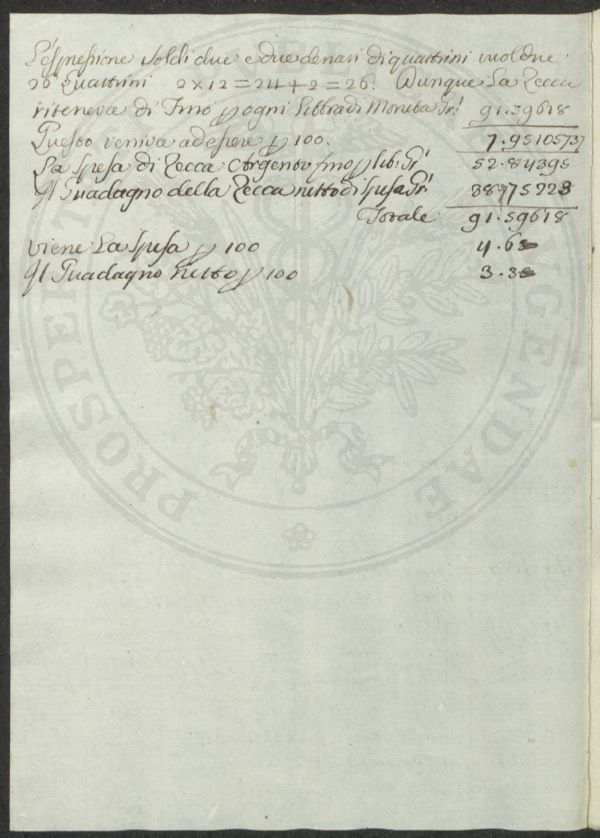 L'espressione soldi due e due denari di quattrini vuol dire
26 quattrini 2 x 12 = 24 + 2 = 26. Dunque La Zecca
riteneva di Fino p ogni Libbra di Moneta Gr.i 91.59618
Questo veniva ad essere p 100. 7.95105737
La Spesa di Zecca Argento fino p lib. Gr.i 52.84395
Il Guadagno della Zecca netto di spesa Gr.i 38.75223
Totale 91.59618
viene La Spesa p 100 4.63
Il Guadagno netto p 100 3.3
PROSPERITATI AUGENDAE